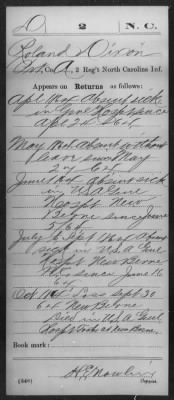 D 2 N.C.
Roland Dixon
Co. A, 2 Reg't North Carolina Inf.
Appears on Returns as follows:
Apl 1864 Absent sick
in Genl Hosp since
Apl 24 64
May 1864 absent without
leave since May
2 64
June 1864 absent sick
in U.S.A. Genl
Hospt New
Berne since June
64
July & Sept 1864 absent
sick in U.S.A. Genl
Hospt New Berne
since June 16
64
Oct 1864 Loss Sept 30
64 New Berne
Died in U.S.A. Genl
Hospt New Berne.
Book mark:
(546) Copyist.